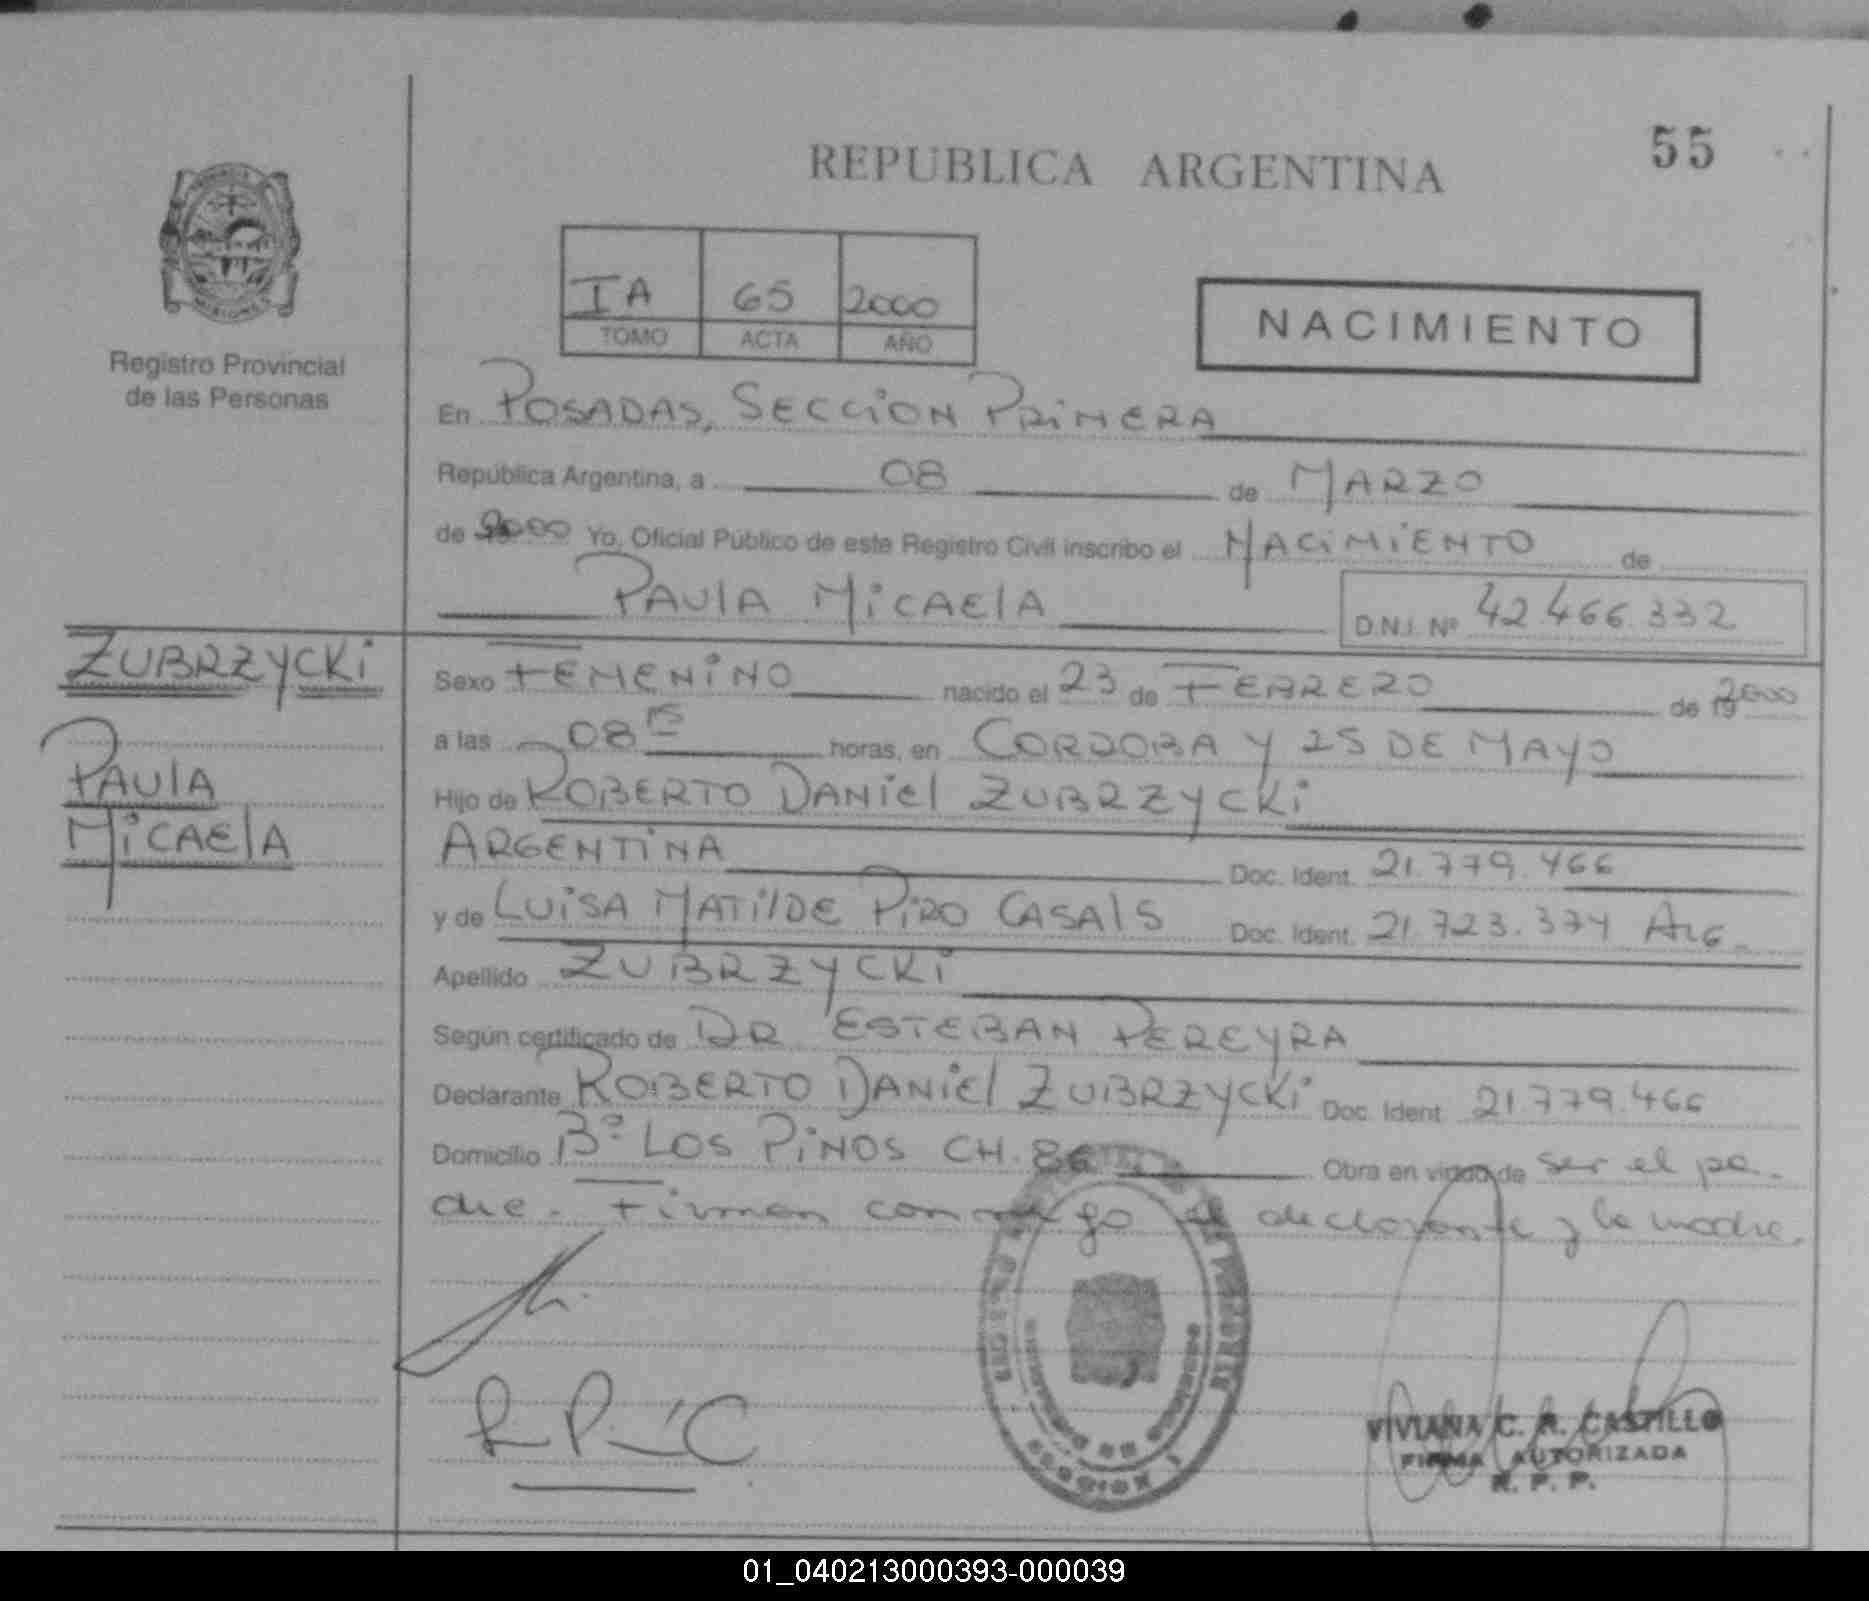 55
REPUBLICA ARGENTINA
IA 65 2000
TOMO ACTA AÑO
NACIMIENTO
Registro Provincial
de las Personas
En POSADAS, SECCION PRIMERA
República Argentina, a 08 de MARZO
de 2000 Yo, Oficial Público de este Registro Civil inscribo el NACIMIENTO de
PAULA MICAELA D.N.I. Nº 42.466.332
ZUBRZYCKI
PAULA
MICAELA
Sexo FEMENINO nacido el 23 de FEBRERO de 2000
a las 08 15 horas, en CORDOBA Y 25 DE MAYO
Hijo de ROBERTO DANIEL ZUBRZYCKI
ARGENTINA Doc. Ident. 21.779.466
y de LUISA MATILDE PIRO CASALS Doc. Ident. 21.723.374 ARG.
Apellido ZUBRZYCKI
Según certificado de DR. ESTEBAN PEREYRA
Declarante ROBERTO DANIEL ZUBRZYCKI Doc. Ident. 21.779.466
Domicilio Bº LOS PINOS CH. 86 Obra en virtud de ser el pa-
dre. Firman conmigo el declarante y la madre.
VIVIANA C. R. CASTILLO
FIRMA AUTORIZADA
R. P. P.
01_040213000393-000039